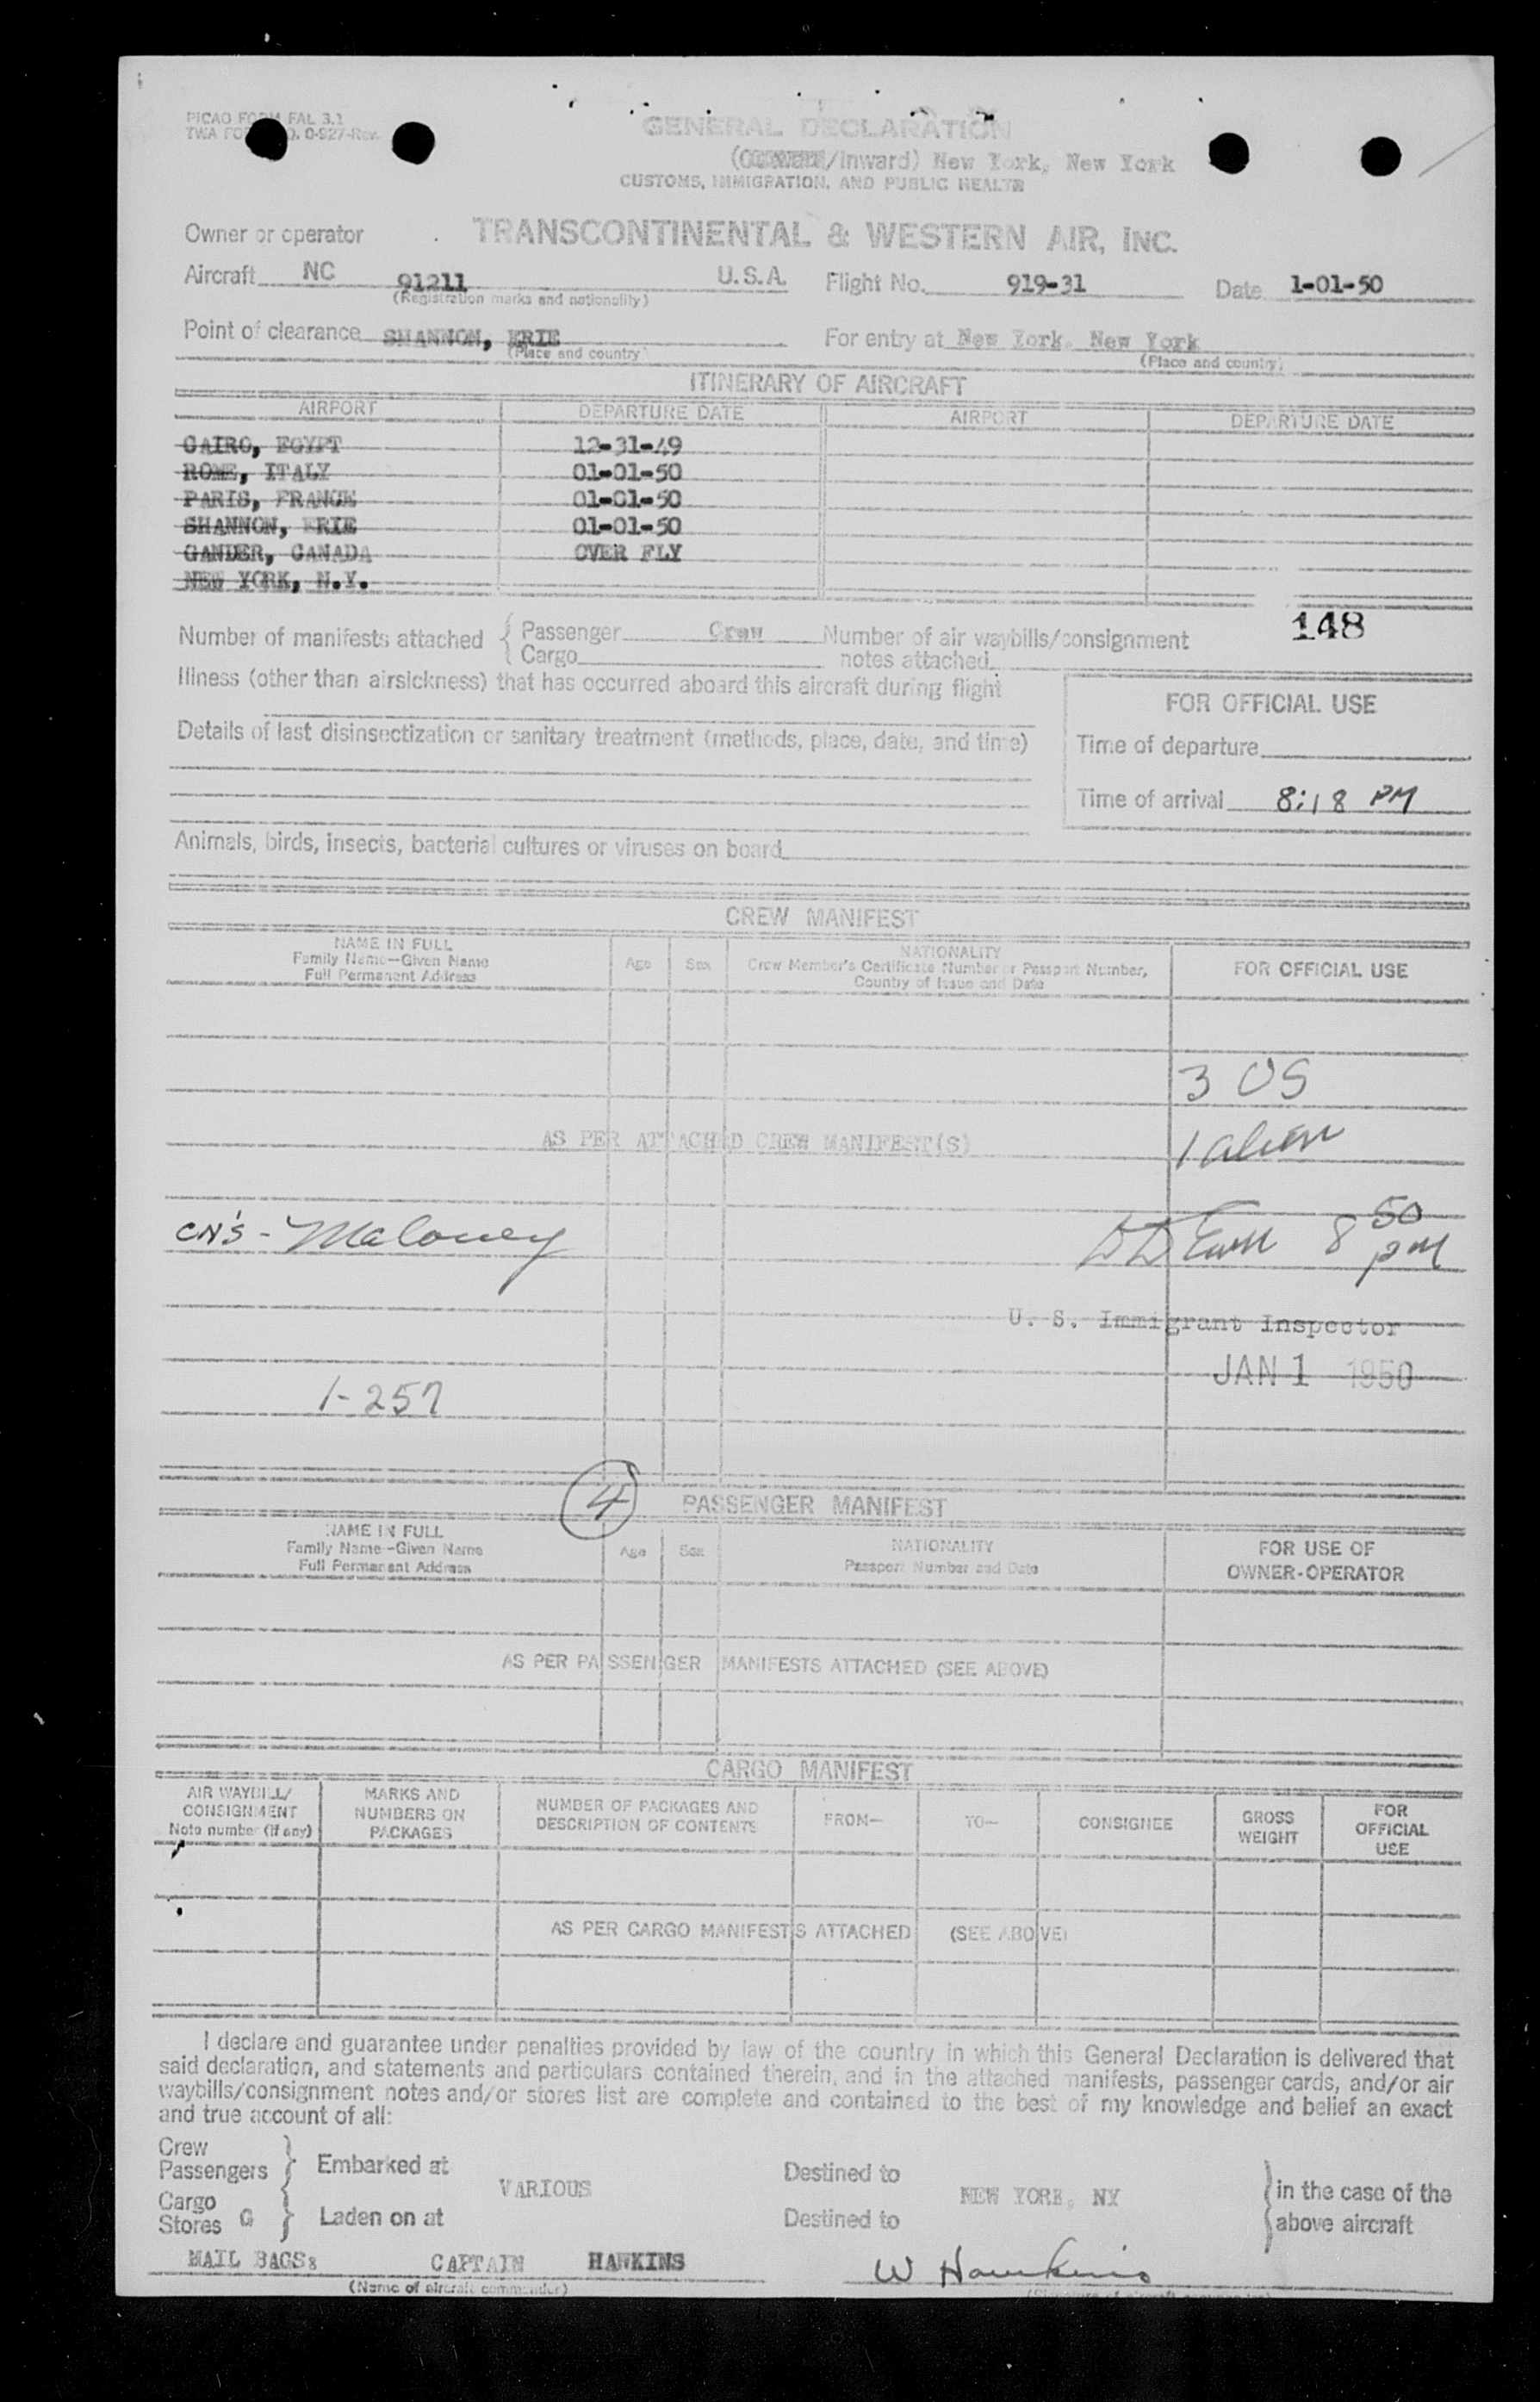 PICAO FORM FAL 3.1
TWA FO O. 0-927-Rev.
GENERAL DECLARATION
(/Inward) New York, New York
CUSTOMS, IMMIGRATION, AND PUBLIC HEALTH
Owner or operator TRANSCONTINENTAL & WESTERN AIR, INC.
Aircraft NC 91211 U.S.A. Flight No. 919-31 Date 1-01-50
(Registration marks and nationality)
Point of clearance SHANNON, ERIE For entry at New York, New York
(Place and country) (Place and country)
ITINERARY OF AIRCRAFT
AIRPORT DEPARTURE DATE AIRPORT DEPARTURE DATE
CAIRO, EGYPT 12-31-49
ROME, ITALY 01-01-50
PARIS, FRANCE 01-01-50
SHANNON, ERIE 01-01-50
GANDER, CANADA OVER FLY
NEW YORK, N.Y.
148
Number of manifests attached { Passenger Crew Number of air waybills/consignment
Cargo notes attached
Illness (other than airsickness) that has occurred aboard this aircraft during flight
FOR OFFICIAL USE
Details of last disinsectization or sanitary treatment (methods, place, date, and time)
Time of departure
Time of arrival 8:18 PM
Animals, birds, insects, bacterial cultures or viruses on board
CREW MANIFEST
NAME IN FULL
Family Name—Given Name
Full Permanent Address
Age Sex
NATIONALITY
Crew Member's Certificate Number or Passport Number,
Country of Issue and Date
FOR OFFICIAL USE
3 US
AS PER ATTACHED CREW MANIFEST(S)
1 alien
CN'S - Maloney
8 50 PM
U. S. Immigrant Inspector
JAN 1 1950
1-257
4
PASSENGER MANIFEST
NAME IN FULL
Family Name—Given Name
Full Permanent Address
Age Sex
NATIONALITY
Passport Number and Date
FOR USE OF
OWNER-OPERATOR
AS PER PASSENGER MANIFESTS ATTACHED (SEE ABOVE)
CARGO MANIFEST
AIR WAYBILL/
CONSIGNMENT
Note number (if any)
MARKS AND
NUMBERS ON
PACKAGES
NUMBER OF PACKAGES AND
DESCRIPTION OF CONTENTS
FROM—
TO—
CONSIGNEE
GROSS
WEIGHT
FOR
OFFICIAL
USE
AS PER CARGO MANIFESTS ATTACHED (SEE ABOVE)
I declare and guarantee under penalties provided by law of the country in which this General Declaration is delivered that
said declaration, and statements and particulars contained therein, and in the attached manifests, passenger cards, and/or air
waybills/consignment notes and/or stores list are complete and contained to the best of my knowledge and belief an exact
and true account of all:
Crew
Passengers } Embarked at VARIOUS Destined to NEW YORK, NY } in the case of the
Cargo
Stores G } Laden on at Destined to above aircraft
MAIL BAGS: CAPTAIN HAWKINS W Hawkins
(Name of aircraft commander)